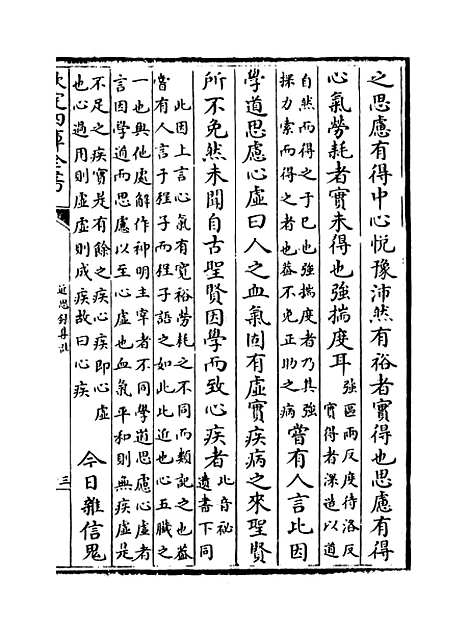 之思慮有得中心悦豫沛然有裕者實得也思慮有得
心氣勞耗者實未得也強揣度耳
強區兩反度待洛反
實得者深造以道
自然而得之于已也強揣度者乃其強
探力索而得之者也蓋不免正助之病
嘗有人言比因
學道思慮心虛曰人之血氣固有虛實疾病之來聖賢
所不免然未聞自古聖賢因學而致心疾者
比音祕
遺書下同
此因上言心氣有寛裕勞耗之不同而類記之也蓋
嘗有人言于程子而程子語之如此比近也心五臟之
一也與他處解作神明主宰者不同學道思慮心虛者
言因學道而思慮以至心虛也血氣平和則無疾虛是
不足之疾實是有餘之疾心疾即心虛
也心過用則虛虛則成疾故曰心疾
今日雜信鬼
欽定四庫全書
近思録集註
三